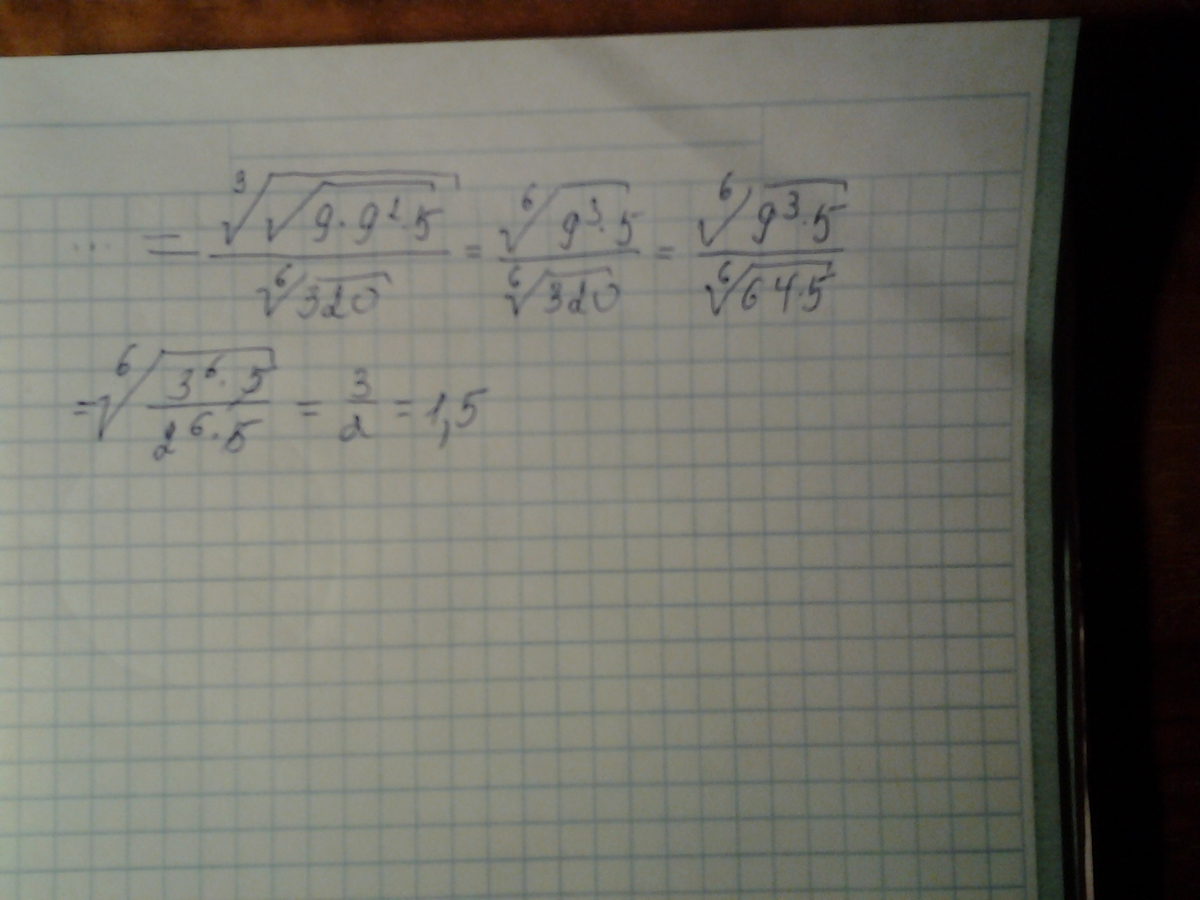 ... = ∛(√(9·9²·5)) / ⁶√320 = ⁶√(9³·5) / ⁶√320 = ⁶√(9³·5) / ⁶√(64·5)
= ⁶√((3⁶·5) / (2⁶·5)) = 3/2 = 1,5